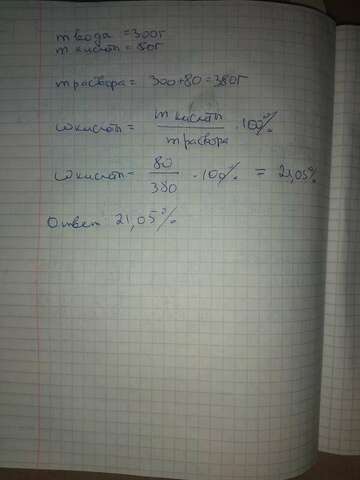 m вода = 300г
m кислот = 80г
m раствора = 300+80=380г
ω кислот = m кислоты / m раствора · 100%
ω кислот = 80 / 380 · 100% = 21,05%
Ответ 21,05%